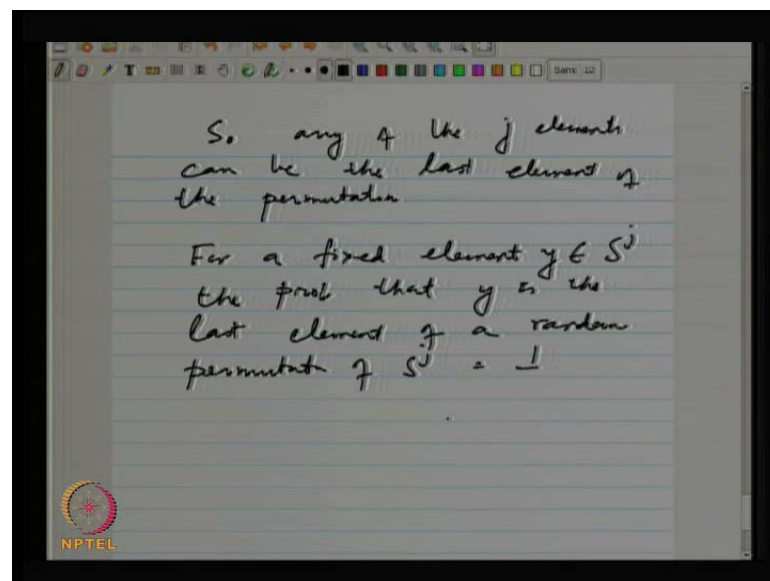 Sans 12
So any of the j elements
can be the last element of
the permutation
For a fixed element y ∈ S^j
the prob that y is the
last element of a random
permutatn of S^j = 1
NPTEL